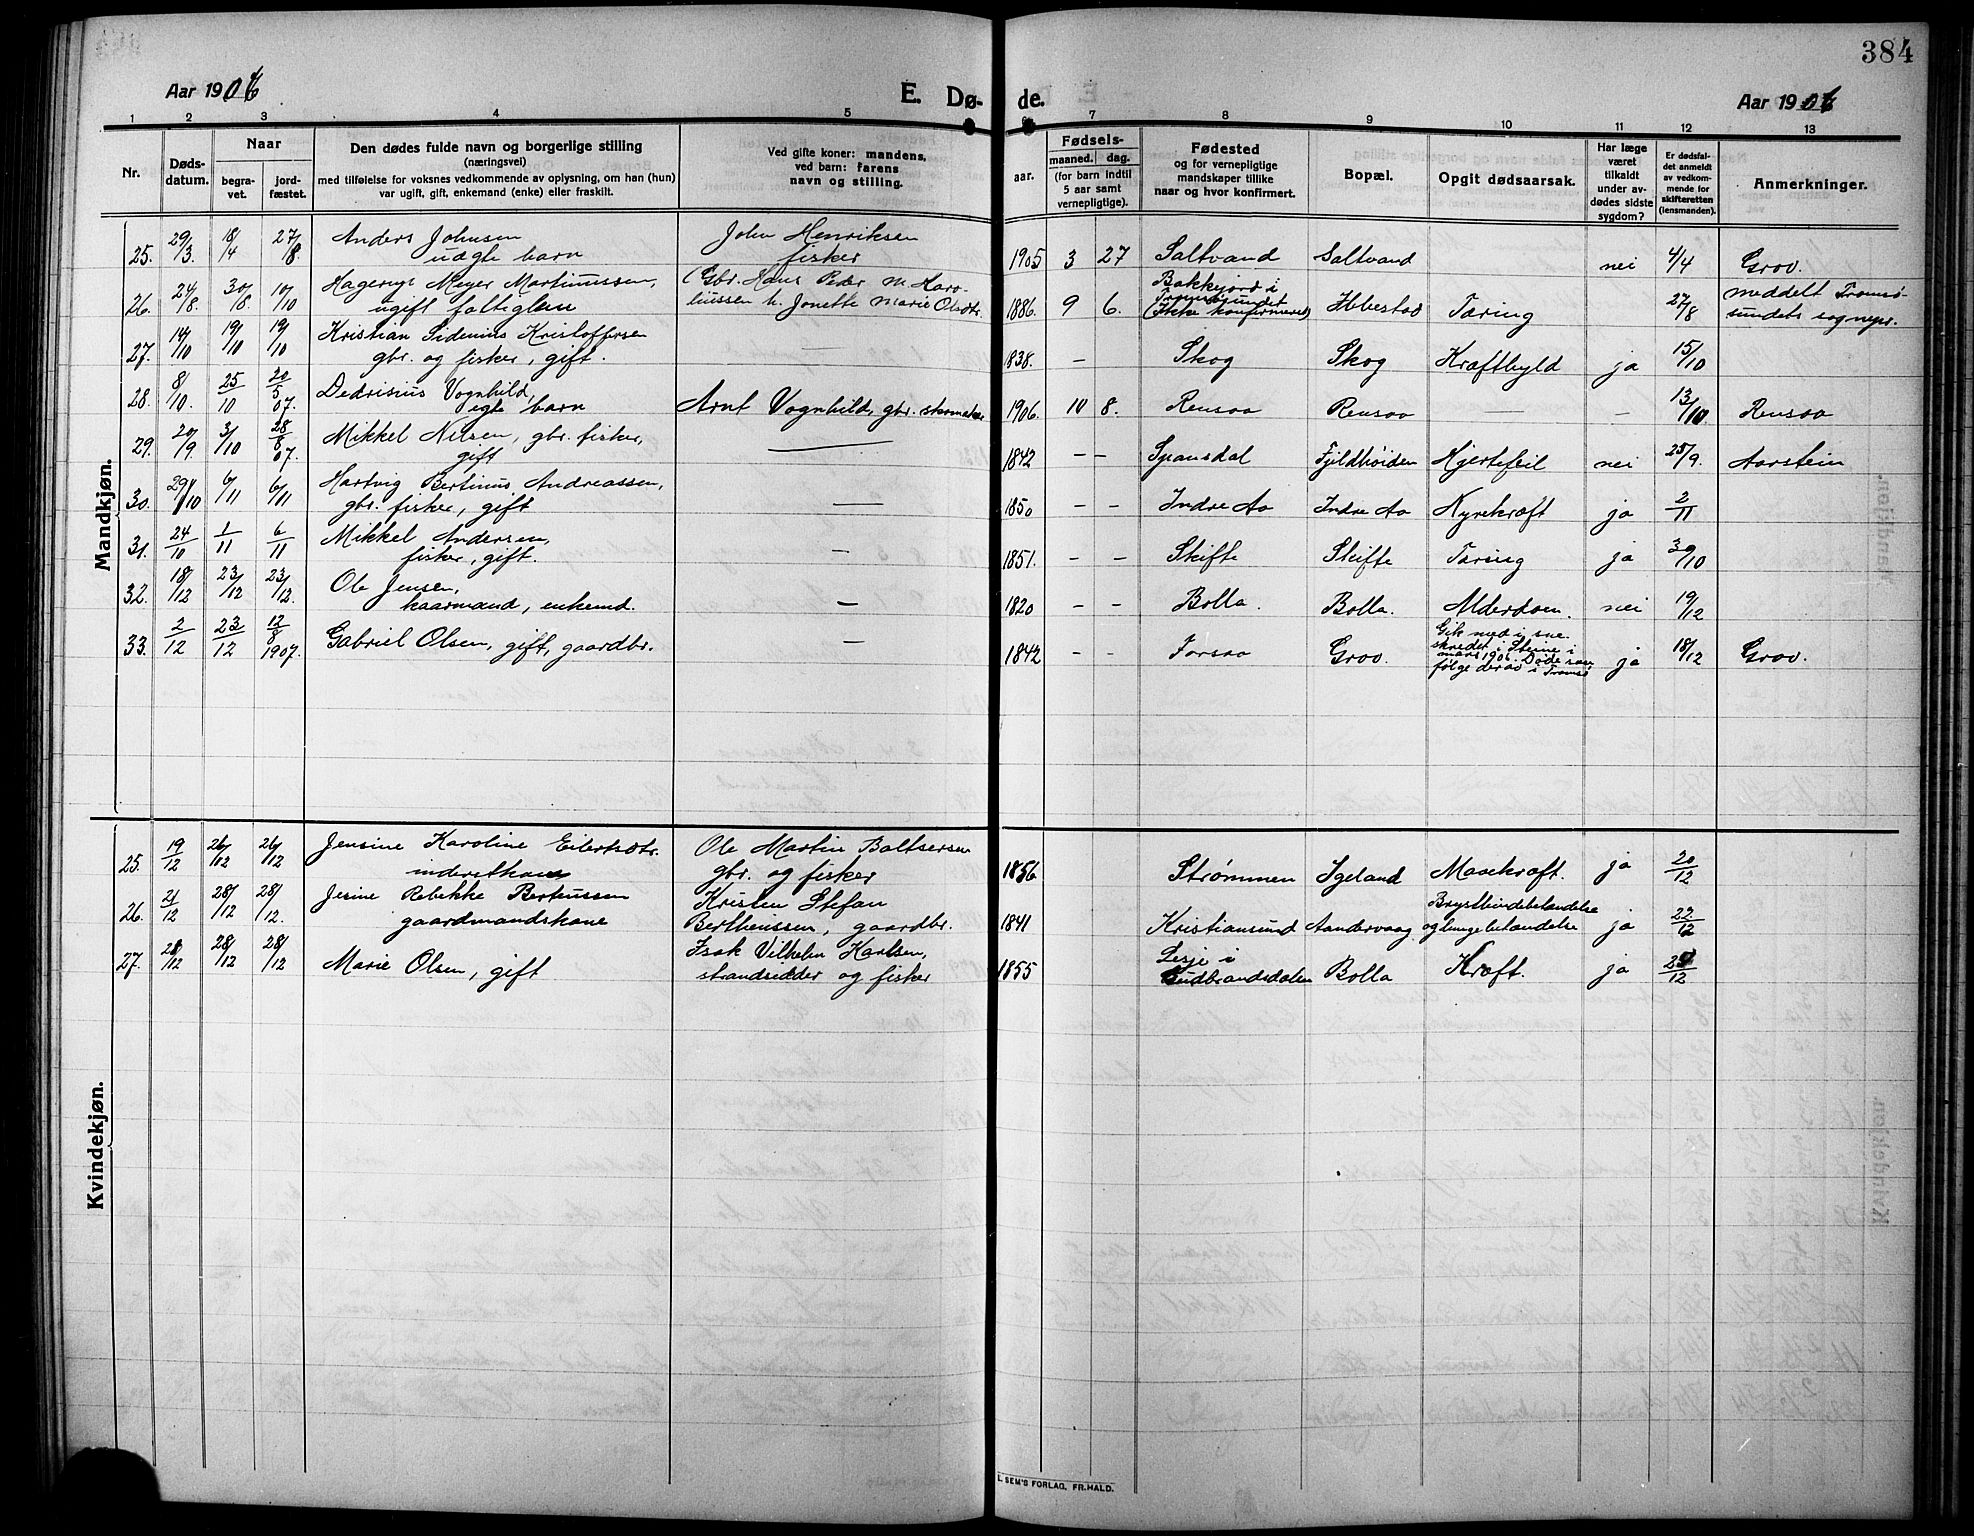 384
Aar 1906
E. Dø-
de.
Aar 1906
1 2 3 4 5 6 7 8 9 10 11 12 13
Nr.
Døds-
datum.
Naar
begra-
vet.
jord-
fæstet.
Den dødes fulde navn og borgerlige stilling
(næringsvei)
med tilføielse for voksnes vedkommende av oplysning, om han (hun)
var ugift, gift, enkemand (enke) eller fraskilt.
Ved gifte koner: mandens,
ved barn: farens
navn og stilling.
Fødsels-
aar.
maaned. dag.
(for barn indtil
5 aar samt
vernepligtige).
Fødested
og for vernepligtige
mandskaper tillike
naar og hvor konfirmert.
Bopæl.
Opgit dødsaarsak.
Har læge
været
tilkaldt
under av-
dødes sidste
sygdom?
Er dødsfal-
det anmeldt
av vedkom-
mende for
skifteretten
(lensmanden).
Anmerkninger.
Mandkjøn.
25. 29/3 18/4 27/8 Anders Johnsen John Henriksen
uægte barn fisker 1905 3 27 Saltvand Saltvand nei 4/4 Grov.
26. 24/8 30/8 10/10 Hagerup Meyer Martinussen, (Gbr. Hans Peder M.
ugift fattiglem h. Jonette Marie Olsdtr. 1886. 9 6. Bakkejord i
(Ikke konfirmeret) Ibbestad Tæring 27/8 meddelt Tromsø-
sundets sognepr.
27. 14/10 19/10 19/10 Kristian Sidenius Kristoffersen —
gbr. og fisker, gift. 1838. - Skog Skog Kræftbyld ja 15/10
28. 8/10. 25/10 20/5 07. Dedrisius Vognhild,
egte barn Arnt Vognhild, gbr. skomaker 1906. 10 8. Rensaa Rensaa — — 13/10 Rensaa
29. 20/9 3/10 28/8 07. Mikkel Nilsen, gbr. fisker,
gift — 1842 - - Spansdal Fjeldhøiden Hjertefeil nei 25/9. Aarstein
30. 29/10 6/11 6/11 Hartvig Bertinus Andreassen,
gbr. fisker, gift — 1850 - - Indre Aa Indre Aa Nyrekræft ja 2/11
31. 24/10 1/11 6/11 Mikkel Andersen,
fisker, gift. — 1851. - - Skifte Skifte Tæring ja 30/10
32. 18/12 23/12 23/12. Ole Jensen,
kaarmand, enkemd. — 1820 - - Bolla. Bolla. Alderdom. nei 19/12
33. 2/12 23/12 12/8 1907. Gabriel Olsen, gift, gaardbr. — 1842 - - Forsaa Grov. Gik med i sne-
skredet i Steine i
mars 1906. Døde som
følge derav i Tromsø ja 18/12 Grov.
Kvindekjøn.
25. 19/12 26/12 26/12 Jensine Karoline Eilertsdtr. Ole Martin Baltsersen
inderstkone gbr. og fisker 1856 Strømmen Igeland Mavekræft. ja 20/12
26. 21/12 28/12 28/12. Jesine Rebekke Berteussen Kristen Stefan
gaardmandskone Bertheussen, gaardbr. 1841 Kristiansund Aandervaag Brysthindebetændelse
og lungebetændelse ja 22/12
27. 28/12 28/12 Marie Olsen, gift Isak Vilhelm Karlsen,
strandsidder og fisker 1855 Lesje i
Gudbrandsdalen Bolla Kræft. ja
L. SEM'S FORLAG, FR.HALD.